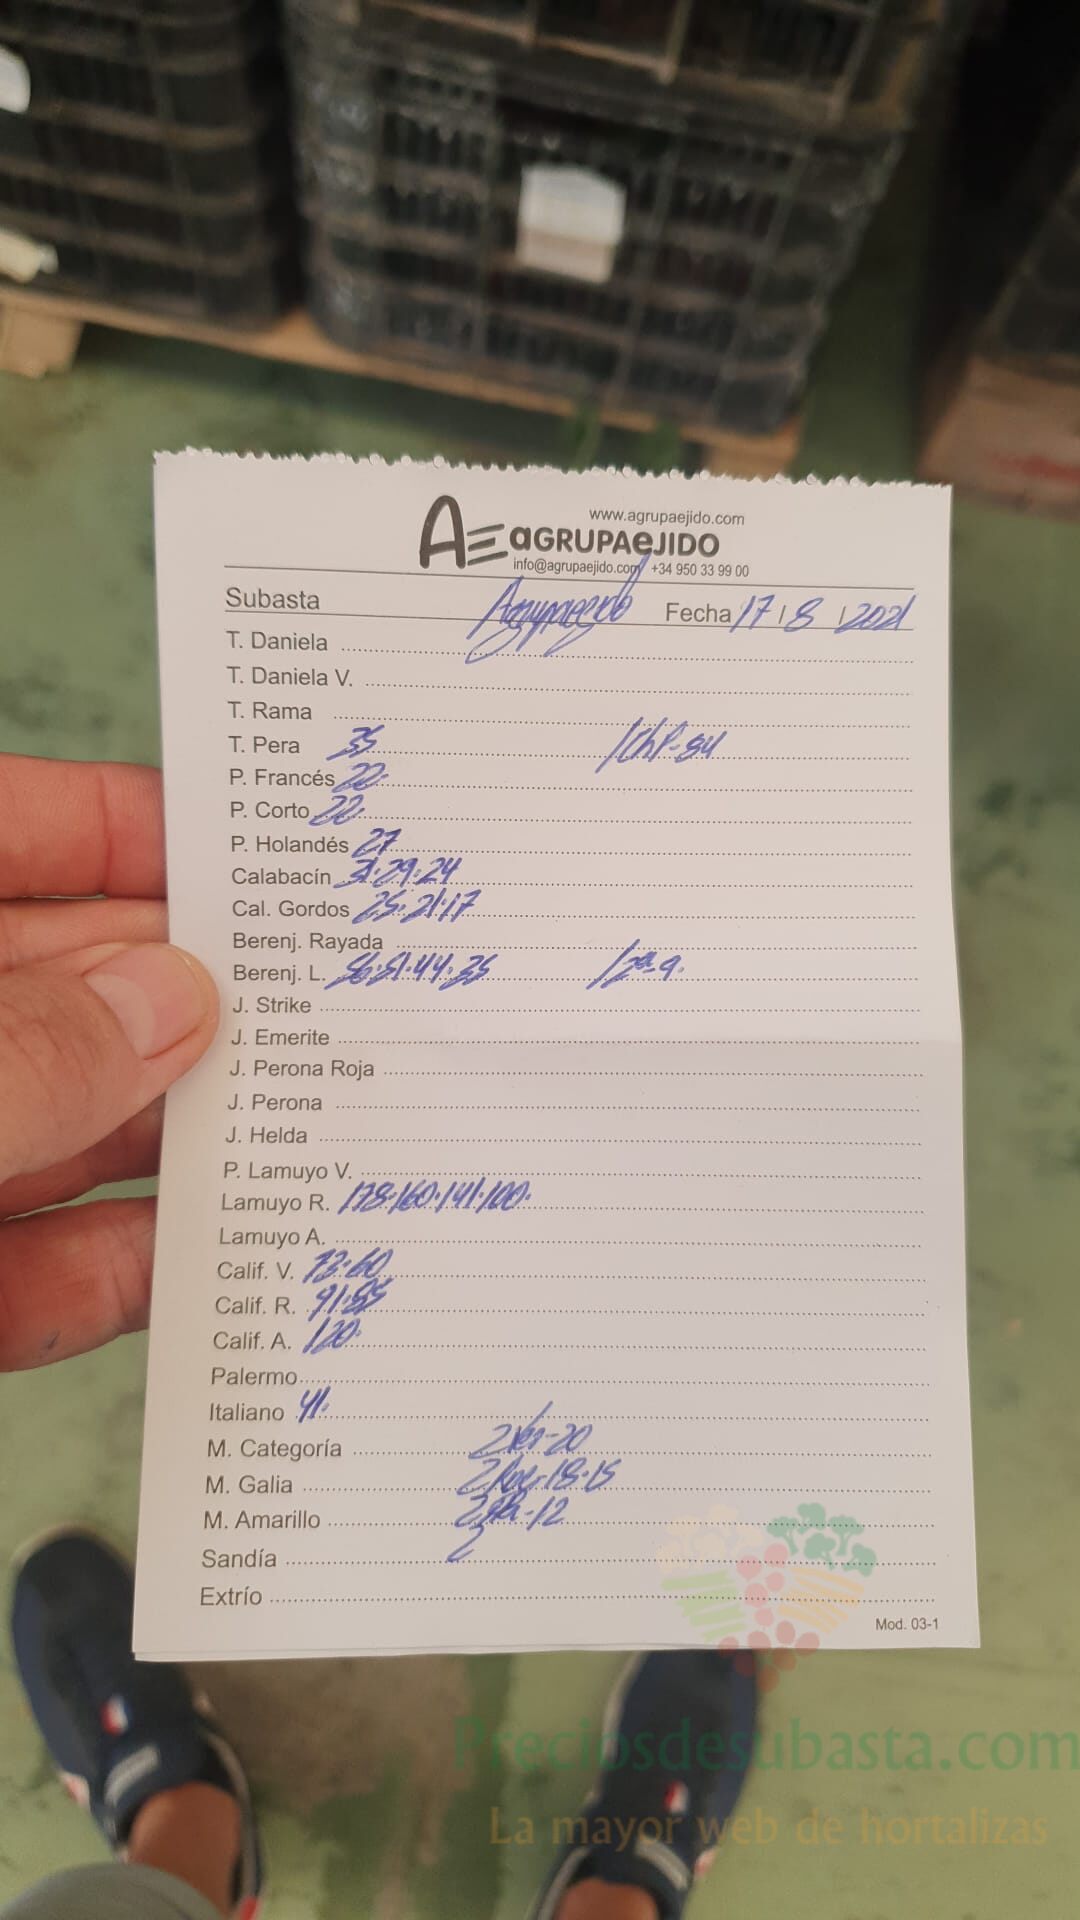 www.agrupaejido.com
AE aGRUPAeJIDO
info@agrupaejido.com +34 950 33 99 00
Subasta Agrupaejido Fecha 17 / 8 / 2021
T. Daniela
T. Daniela V.
T. Rama
T. Pera 35
P. Francés 22.
P. Corto 22.
P. Holandés 27
Calabacín 31.29.24
Cal. Gordos 25.21.17
Berenj. Rayada
Berenj. L. 56.51.44.35 /2ª-9.
J. Strike
J. Emerite
J. Perona Roja
J. Perona
J. Helda
P. Lamuyo V.
Lamuyo R. 178.160.141.100.
Lamuyo A.
Calif. V. 73.60
Calif. R. 91.85
Calif. A. 120.
Palermo
Italiano 41.
M. Categoría
M. Galia
M. Amarillo
Sandía
Extrío
Mod. 03-1
Preciosdesubasta.com
La mayor web de hortalizas